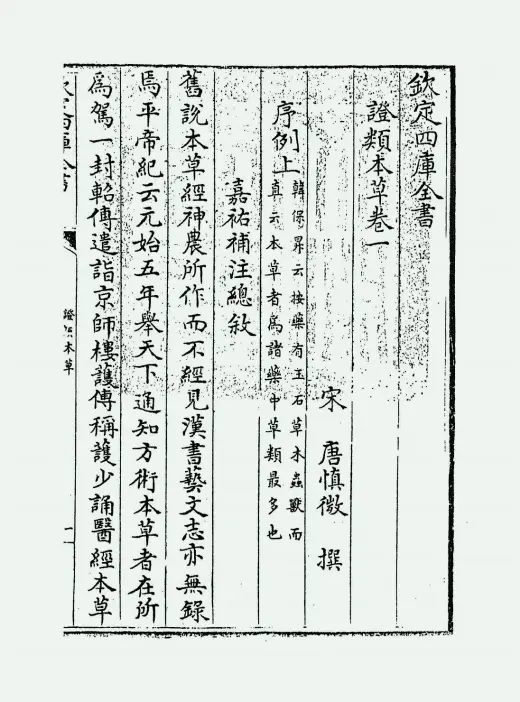 欽定四庫全書
證類本草卷一
宋 唐慎微 撰
序例上
韓保昇云按藥有玉石草木蟲獸而
直云本草者為諸藥中草類最多也
嘉祐補注總敘
舊說本草經神農所作而不經見漢書藝文志亦無錄
焉平帝紀云元始五年舉天下通知方術本草者在所
為駕一封軺傳遣詣京師樓護傳稱護少誦醫經本草
欽定四庫全書
證類本草
一